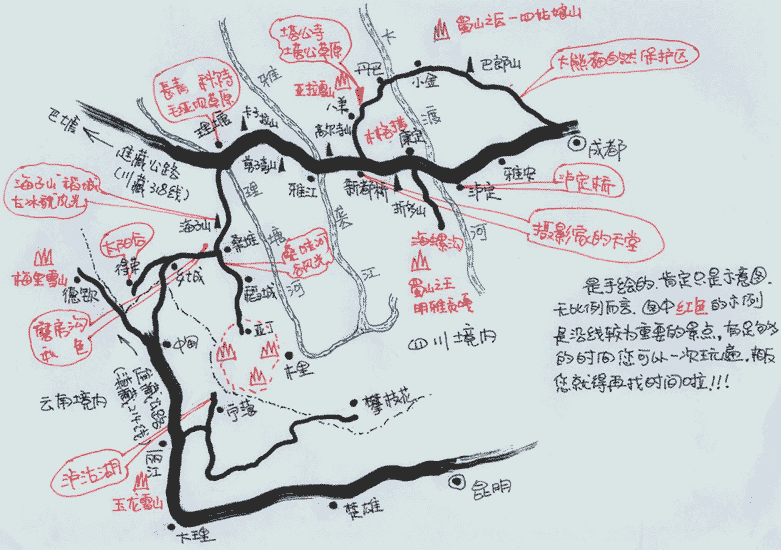 塔公寺
塔公草原
大
蜀山之后—四姑娘山
丹巴
小金
巴郎山
大熊猫自然保护区
长青 科尔寺
毛垭坝草原
雅
亚拉雪山
八美
渡
理塘
卡子拉山
高尔寺山
康定
成都
巴塘
进藏公路
(川藏318线)
剪子弯山
雅江
新都桥
折多山
泸定
雅安
泸定桥
海子山 稻城
古冰体风光
理
海子山
海螺沟
河
摄影家的天堂
太阳后
得荣
桑堆
桑堆河
谷风光
塘
江
蜀山之王
梅里雪山
德钦
乡城
稻城
河
是手绘的，肯定只是示意图，
无比例而言。图中红色的示例
是沿线较为重要的景点，有足够
的时间您可以一次玩遍，相反
您就得再找时间啦!!!
亚丁
中甸
四川境内
木里
云南境内
宁蒗
攀枝花
泸沽湖
丽江
玉龙雪山
昆明
楚雄
大理